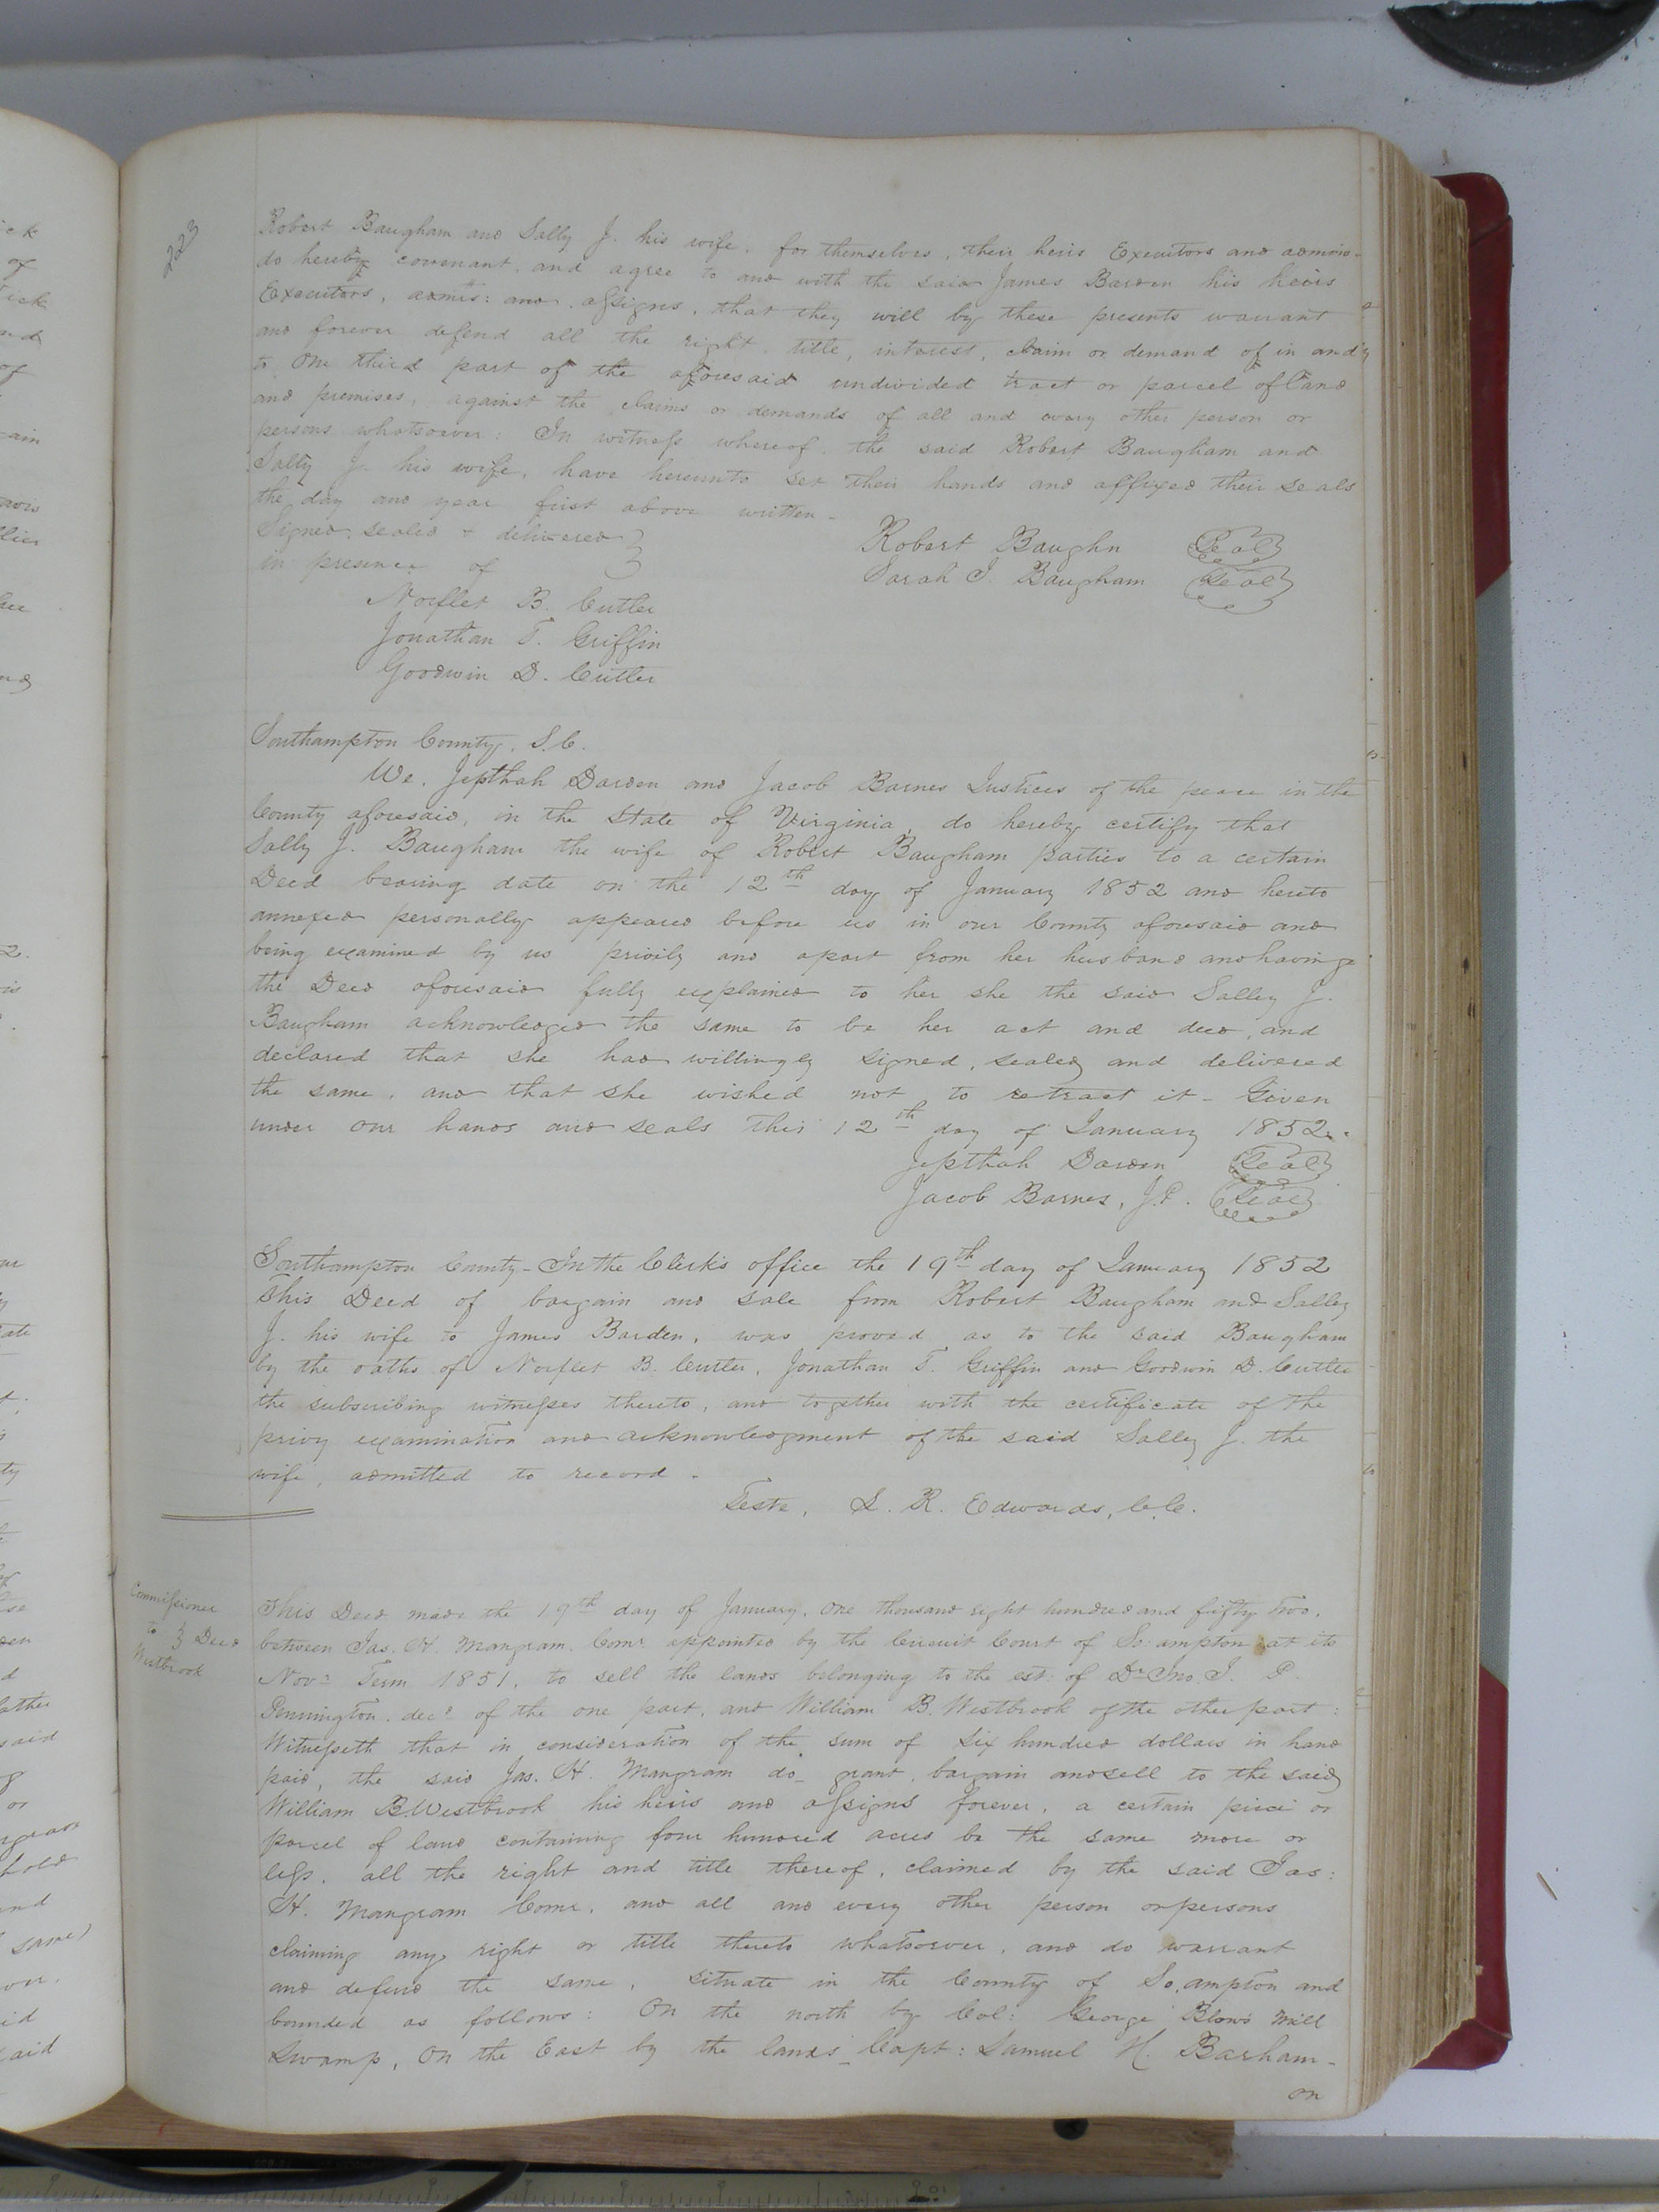 223
Robert Baugham and Sally J. his wife, for themselves, their heirs Executors and admins.
do hereby covenant, and agree to and with the said James Barden his heirs
Executors, admrs: and assigns, that they will by these presents warrant
and forever defend all the right, title, interest, claim or demand of in and
to One third part of the aforesaid undivided tract or parcel of land
and premises, against the claims or demands of all and every other person or
persons whatsoever: In witness whereof the said Robert Baugham and
Sally J. his wife, have hereunto set their hands and affixed their seals
the day and year first above written -
Signed sealed & delivered
in presence of
Robert Baughn Seal
Sarah J. Baugham Seal
Norflet B. Cutler
Jonathan T. Griffin
Goodwin D. Cutler
Southampton County, S.C.
We, Jepthah Darden and Jacob Barnes Justices of the peace in the
County aforesaid, in the State of Virginia, do hereby certify that
Sally J. Baugham the wife of Robert Baugham parties to a certain
Deed bearing date on the 12th day of January 1852 and hereto
annexed personally appeared before us in our County aforesaid and
being examined by us privily and apart from her husband and having
the Deed aforesaid fully explained to her she the said Salley J.
Baugham acknowledged the same to be her act and deed, and
declared that she had willingly signed, sealed and delivered
the same, and that she wished not to retract it - Given
under our hands and seals this 12th day of January 1852.
Jepthah Darden Seal
Jacob Barnes, J.P. Seal
Southampton County - In the Clerk's office the 19th day of January 1852
This Deed of bargain and sale from Robert Baugham and Salley
J. his wife to James Barden, was proved as to the said Baugham
by the oaths of Norflet B. Cutler, Jonathan T. Griffin and Goodwin D. Cutler
the subscribing witnesses thereto, and together with the certificate of the
privy examination and acknowledgment of the said Salley J. the
wife, admitted to record -
Teste, L. R. Edwards, C.C.
Commissioner
to } Deed
Westbrook
This Deed made the 19th day of January, one thousand eight hundred and fifty two,
between Jas. H. Mangram, Comr. appointed by the Circuit Court of So:ampton at its
Novr Term 1851, to sell the lands belonging to the est: of Dr Jno. J. P.
Pennington, decd of the one part, and William B. Westbrook of the other part:
Witnesseth that in consideration of the sum of Six hundred dollars in hand
paid, the said Jas. H. Mangram do grant, bargain and sell to the said
William B Westbrook his heirs and assigns forever, a certain piece or
parcel of land containing four hundred acres be the same more or
less, all the right and title thereof, claimed by the said Jas:
H. Mangram Comr. and all and every other person or persons
claiming any right or title thereto whatsoever, and do warrant
and defend the same, situate in the County of So.ampton and
bounded as follows: On the north by Col: George Blows Mill
Swamp, On the East by the lands Capt: Samuel H. Barham -
on